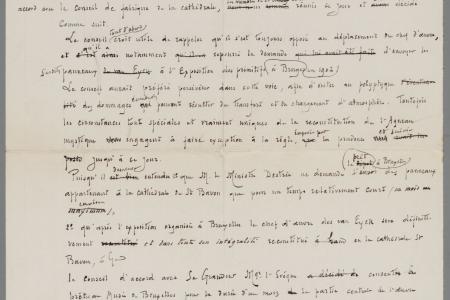 accord avec le Conseil de fabrique de la cathédrale, réunis ce jour et avons décidé
comme suit.
tout d'abord
Le conseil croit utile de rappeler qu'il s'est toujours opposé au déplacement du chef d'œuvre,
qu'il a
et notamment repoussé la demande qui lui avait été faite d'envoyer les
panneaux de van Eyck à l'Exposition des primitifs à Bruges en 1902.
Le conseil aurait préféré persévérer dans cette voie, afin d'éviter au polyptyque l'éventua-
lité des dommages qui peuvent résulter du transport et du changement d'atmosphère. Toutefois
les circonstances tout spéciales et vraiment uniques de la reconstitution de l'Agneau
mystique nous engagent à faire exception à la règle, que la prudence
jusqu'à ce jour.
à Bruxelles
Puisqu'il entendu que M. le Ministre Destrée ne demande l'envoi des panneaux
appartenant à la cathédrale de St Bavon que pour un temps relativement court (un mois
maximum),
2° qu'après l'exposition organisée à Bruxelles le chef d'œuvre des van Eyck sera définiti-
vement et dans toute son intégralité reconstitué à Gand en la cathédrale St
Bavon, à Gand
le conseil d'accord avec Sa Grandeur Mgr l'Evêque a décidé de consentir à
Musée de Bruxelles pour la durée d'un mois la partie centrale de l'œuvre